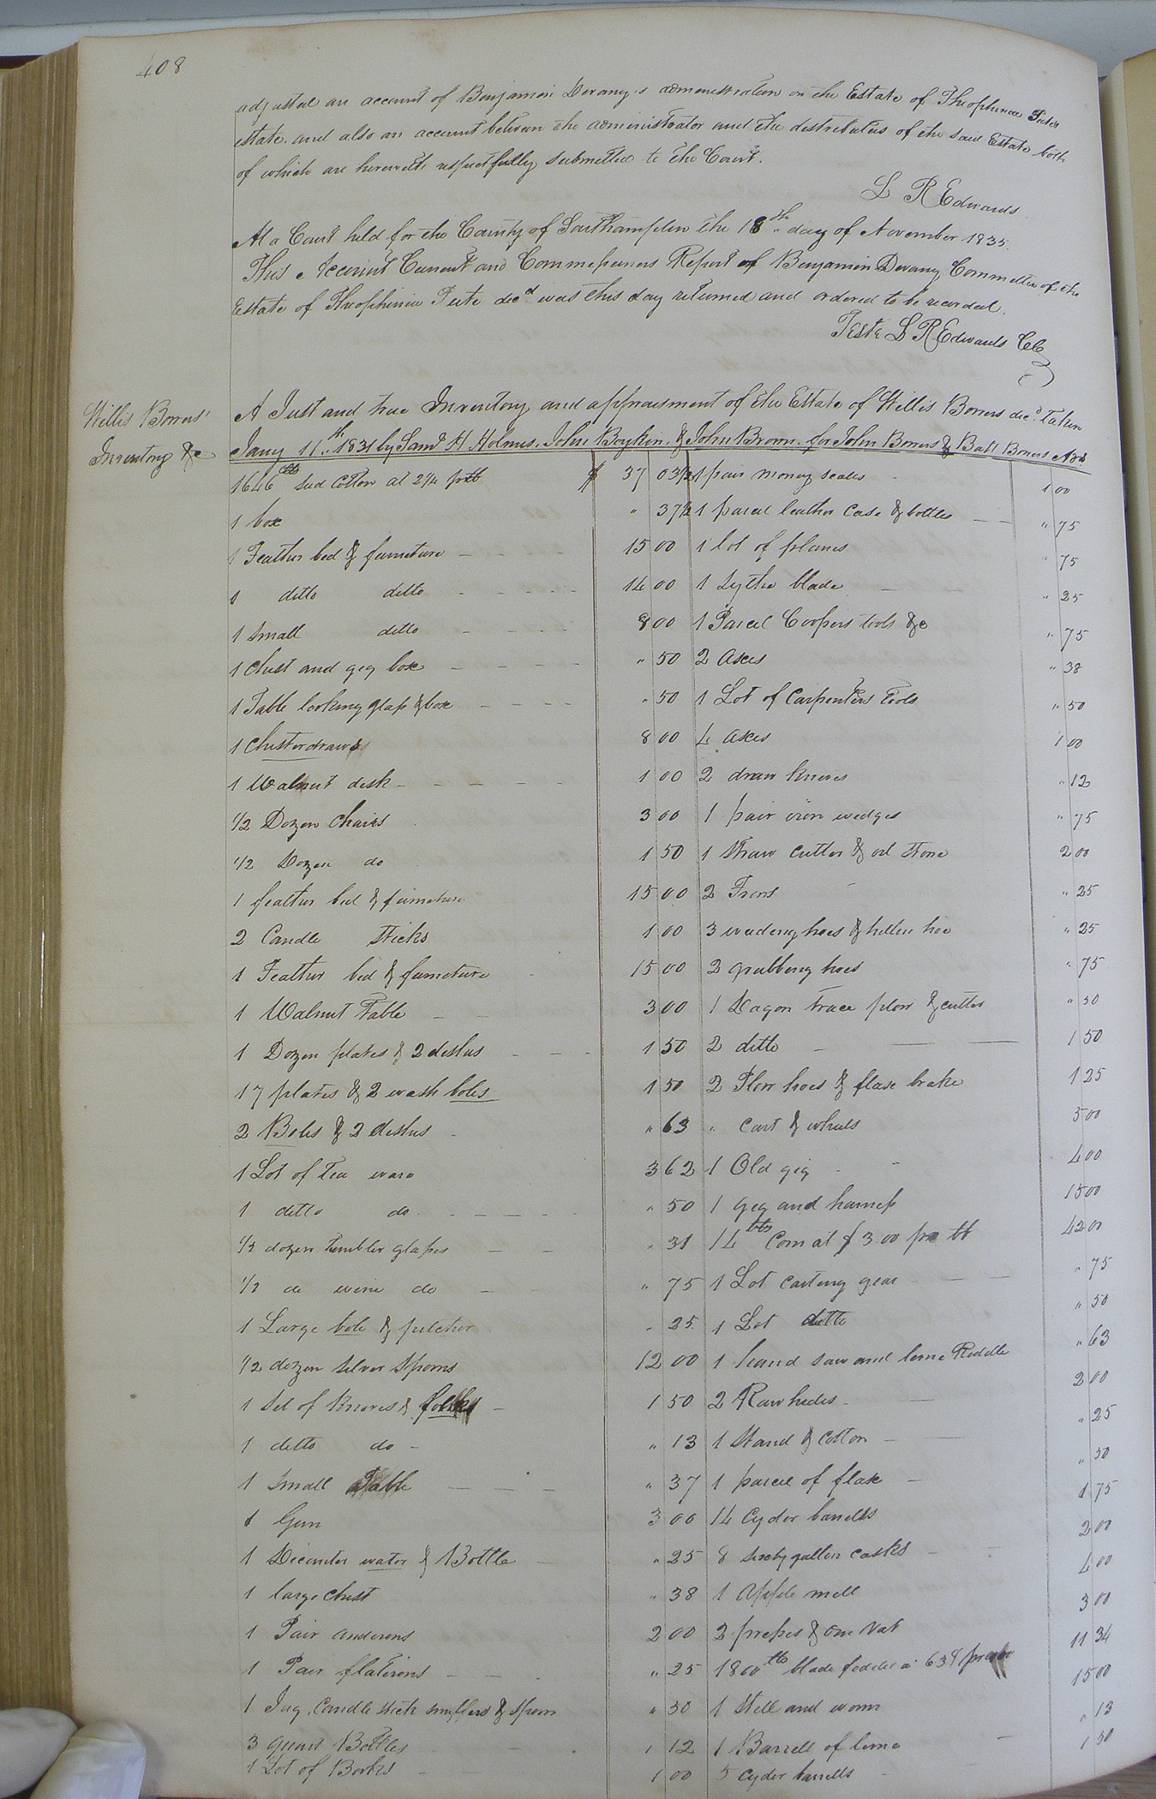 408
adjusted an account of Benjamin Devany's administration on the Estate of Theophinia
estate and also an account between the administrator and the distributees of the said Estate both
of which are herewith respectfully submitted to the Court.
L R Edwards
At a Court held for the County of Southampton the 18th day of November 1835.
This Account Current and Commissioners Report of Benjamin Devany Committee of the
Estate of Theophinia decd was this day returned and ordered to be recorded.
Teste L R Edwards CC
Willis Bowers'
Inventory &c
A Just and true Inventory and appraisment of the Estate of Willis Bowers decd Taken
Jany 11th 1831 by Saml H. Holmes, John Boykin & John Brown for John Bowers & Bowers
1646 lbs Seed Cotton at 2 1/4 pr lb $ 37 03 1/2
1 box " 37 1/2
1 Feather bed & furniture 15 00
1 ditto ditto 14 00
1 Small ditto 8 00
1 Chest and gig box " 50
1 Table looking glass & box " 50
1 Chesterdraws 8 00
1 Walnut desk 1 00
1/2 Dozen Chairs 3 00
1/2 Dozen do 1 50
1 feather bed & furniture 15 00
2 Candle Sticks 1 00
1 Feather bed & furneture 15 00
1 Walnut Table 3 00
1 Dozen plates & 2 dishes 1 50
17 plates & 2 wash boles 1 50
2 Boles & 2 dishes " 63
1 Lot of Tea ware 3 62
1 ditto do " 50
1/2 dozen tumbler glasses " 31
1/2 do wine do " 75
1 Large bole & pitcher " 25
1/2 dozen silver Spoons 12 00
1 Set of Knives & 1 50
1 ditto do " 13
1 Small Table " 37
1 Gun 3 00
1 Decanter water & Bottle " 25
1 large Chest " 38
1 Pair andirons 2 00
1 Pair flatirons " 25
1 Jug, Candle stick snuffers & Spoon " 50
3 quart Bottles " 12
1 Lot of Books 1 00
1 pair money scales 1 00
1 parcel leather Case & bottles " 75
1 lot of planes " 75
1 Sythe blade " 25
1 Parcel Coopers tools &c " 75
2 Axes " 38
1 Lot of Carpenters Tools " 50
4 Axes 1 00
2 draw knives " 12
1 pair iron wedges " 75
1 Straw cutter & oil Stone 2 00
2 Frows " 25
3 weeding hoes & hilling hoe " 25
2 grubbing hoes " 75
1 Dagon trace plow & cutter " 50
2 ditto 1 50
2 Plow hoes & flax brake 1 25
" Cart & wheels 5 00
1 Old gig 4 00
1 gig and harness 15 00
14 bbs Corn at $3.00 pr bb 42 00
1 Lot Carting gear " 75
1 Lot ditto " 50
1 hand saw and lime Riddle " 63
2 Raw hides 2 00
1 Stand & Cotton " 25
1 parcel of flax " 50
14 Cyder barrells 1 75
8 Sixty gallon casks 2 00
1 Apple mill 4 00
2 presses & one Vat 3 00
1800 lbs blade fodder a 63¢ pr 11 34
1 Still and worm 15 00
1 Barrell of lime " 13
5 Cyder barrells 1 50